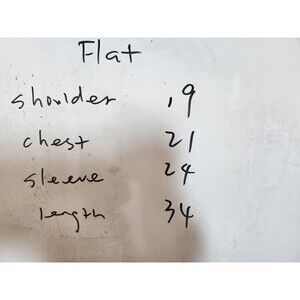 Flat
shoulder 19
chest 21
sleeve 24
length 34